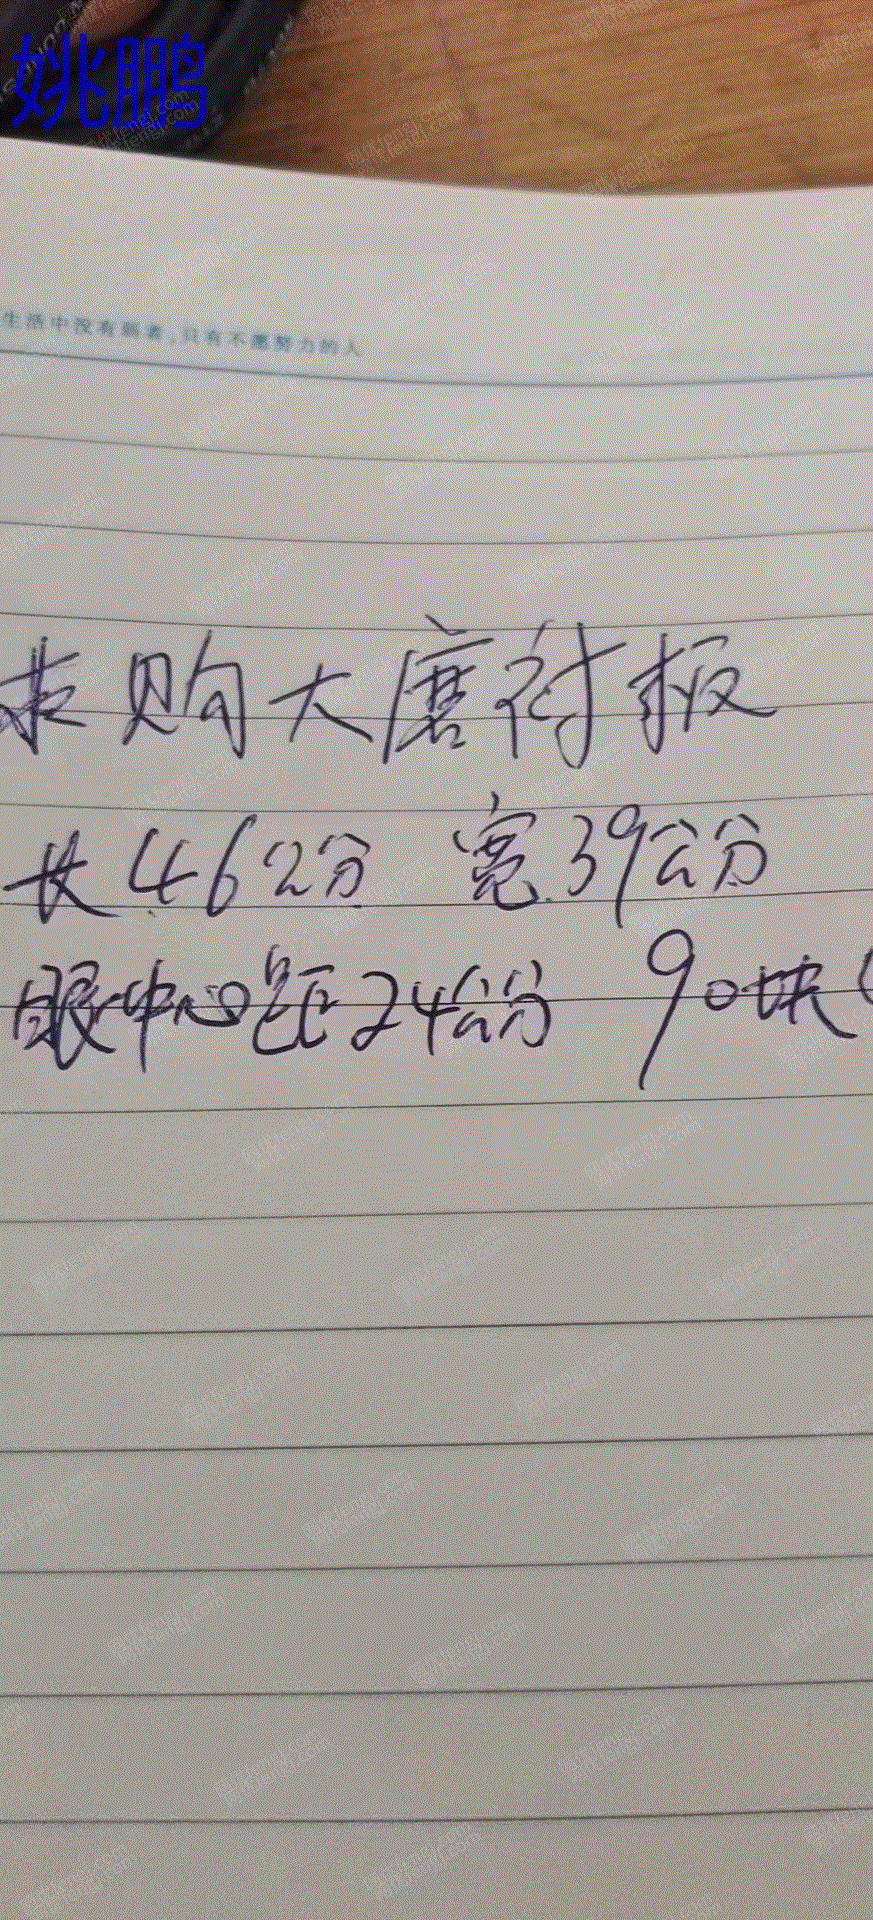 姚鹏
生活中没有弱者，只有不愿努力的人
求购大磨衬板
长46公分 宽39公分
眼中心距24公分 90块(